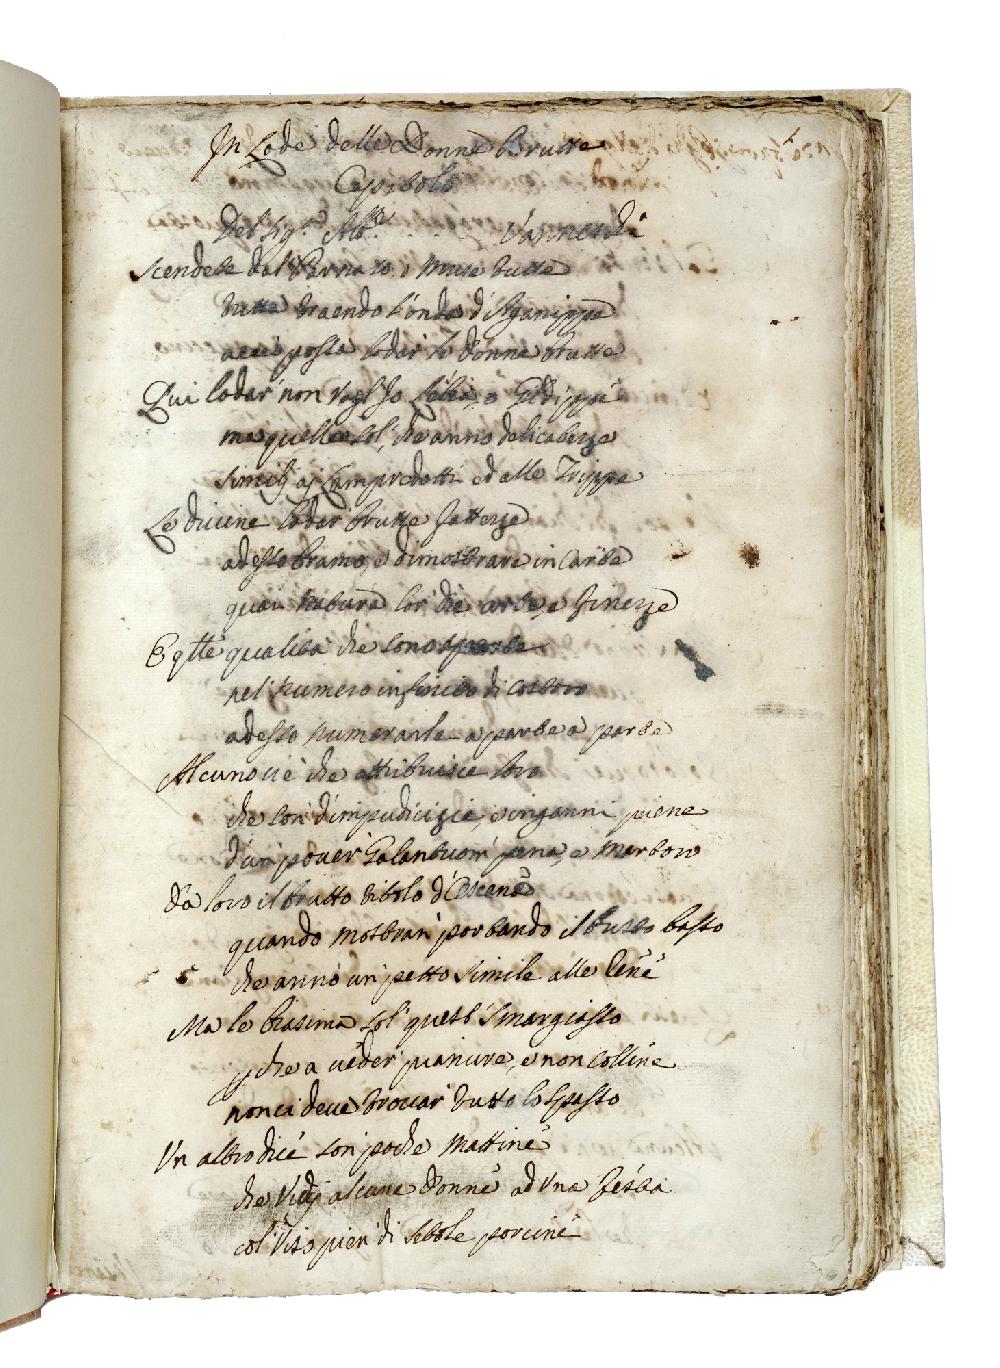 In Lode delle Donne Brutte
Capitolo
Del Sig.r Alb.o . . . . Vannetti
Scendete dal Parnaso o Muse tutte
tutta traendo l'onda d'Aganippe
accio possa lodar le donne brutte
Qui lodar non vogl'Io
ma quelle sol', che anno delicatezze
simili aj Lampredotti ed alle Trippe
Le divine lodar brutte fattezze
adesso bramo, e dimostrare in Carte
quai natura lor' diè arte, e finezze
E q.lle qualità che sono sparte
nel numero infinito di costoro
adesso numerarle a parte a parte
Alcuno ci è che attribuisce loro
che son' d'impudicizie, e inganni piene
d'un pover' Galantuom' pena, e Martoro
Da loro il brutto titolo d'Oscene
quando mostran' portando il busto basso
che anno un' petto simile alle Rene
Ma le biasima sol' quest' Smargiasso
p che a veder' pianure, e non Colline
non ci deve trovar' tutto lo Spasso
Un altro dice son' poche Mattine
che Vidj alcune Donne ad una festa
col' Viso pien' di setole porcine